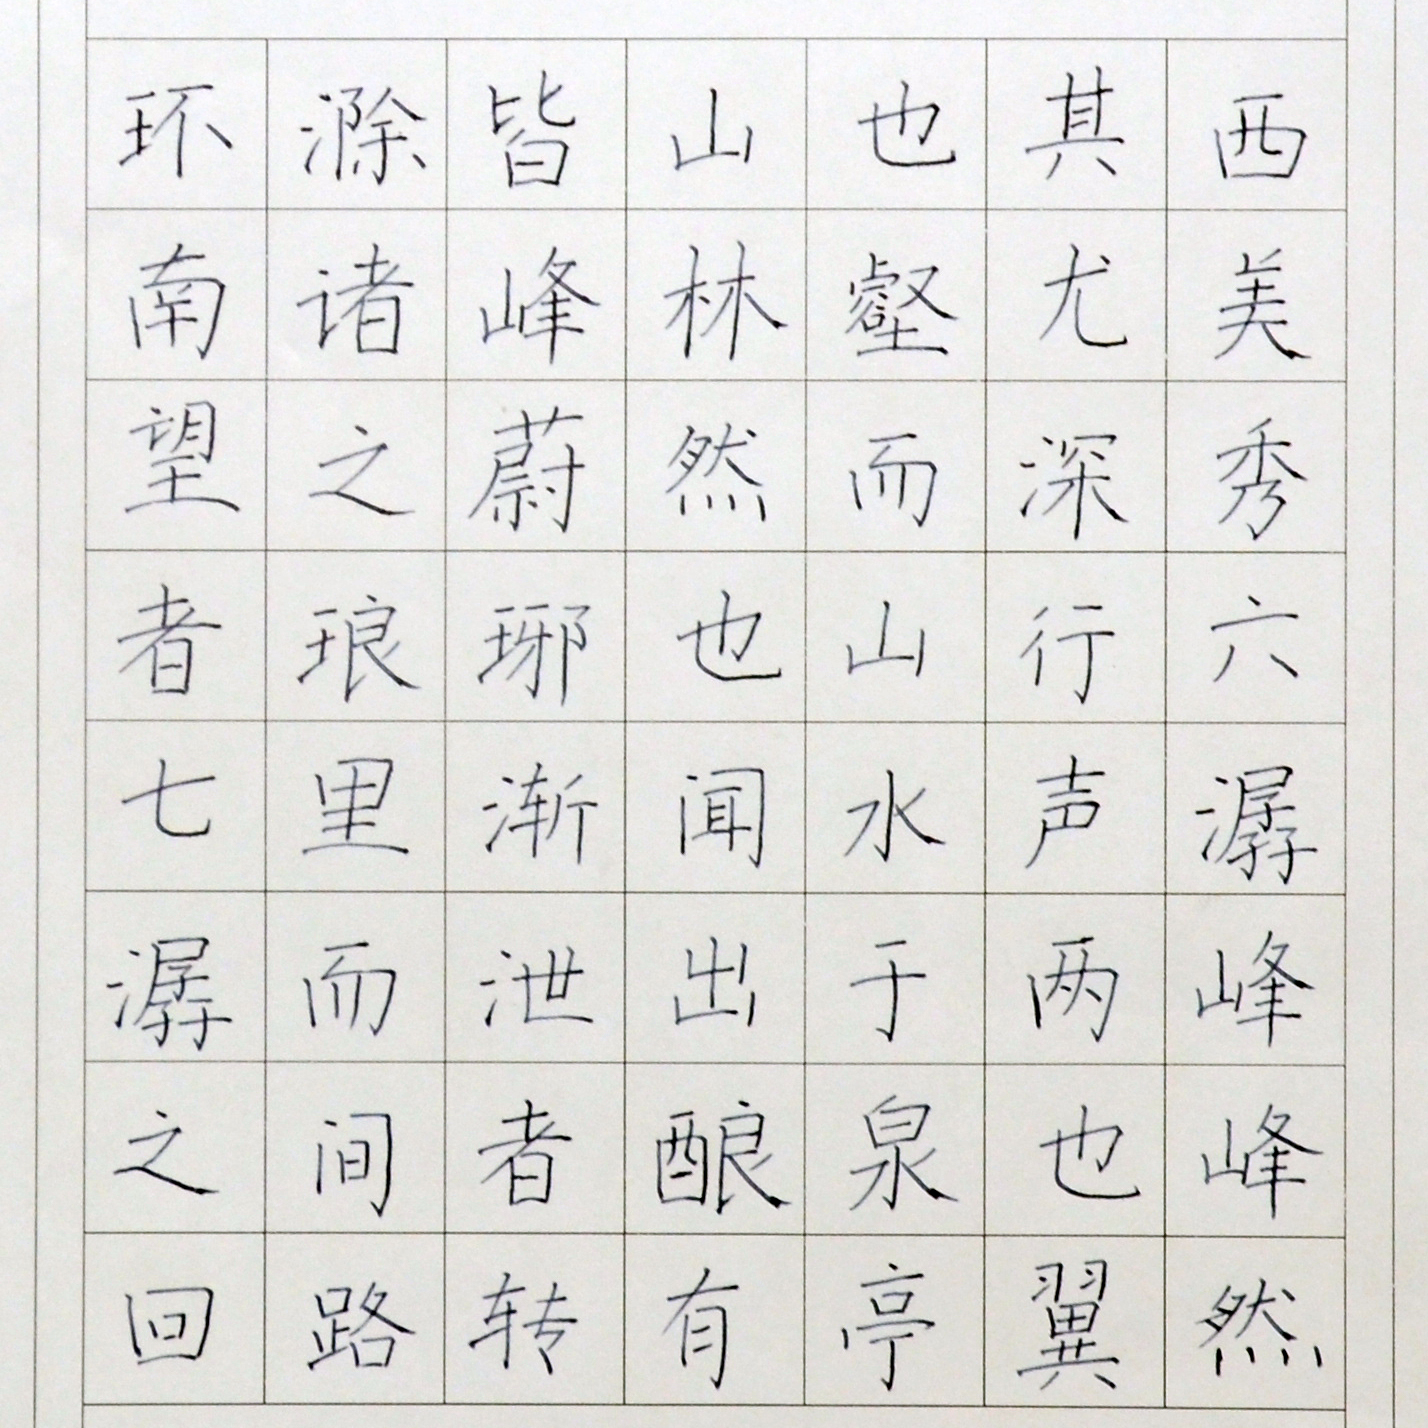 环滁皆山也其西
南诸峰林壑尤美
望之蔚然而深秀
者琅琊也山行六
七里渐闻水声潺
潺而泄出于两峰
之间者酿泉也峰
回路转有亭翼然